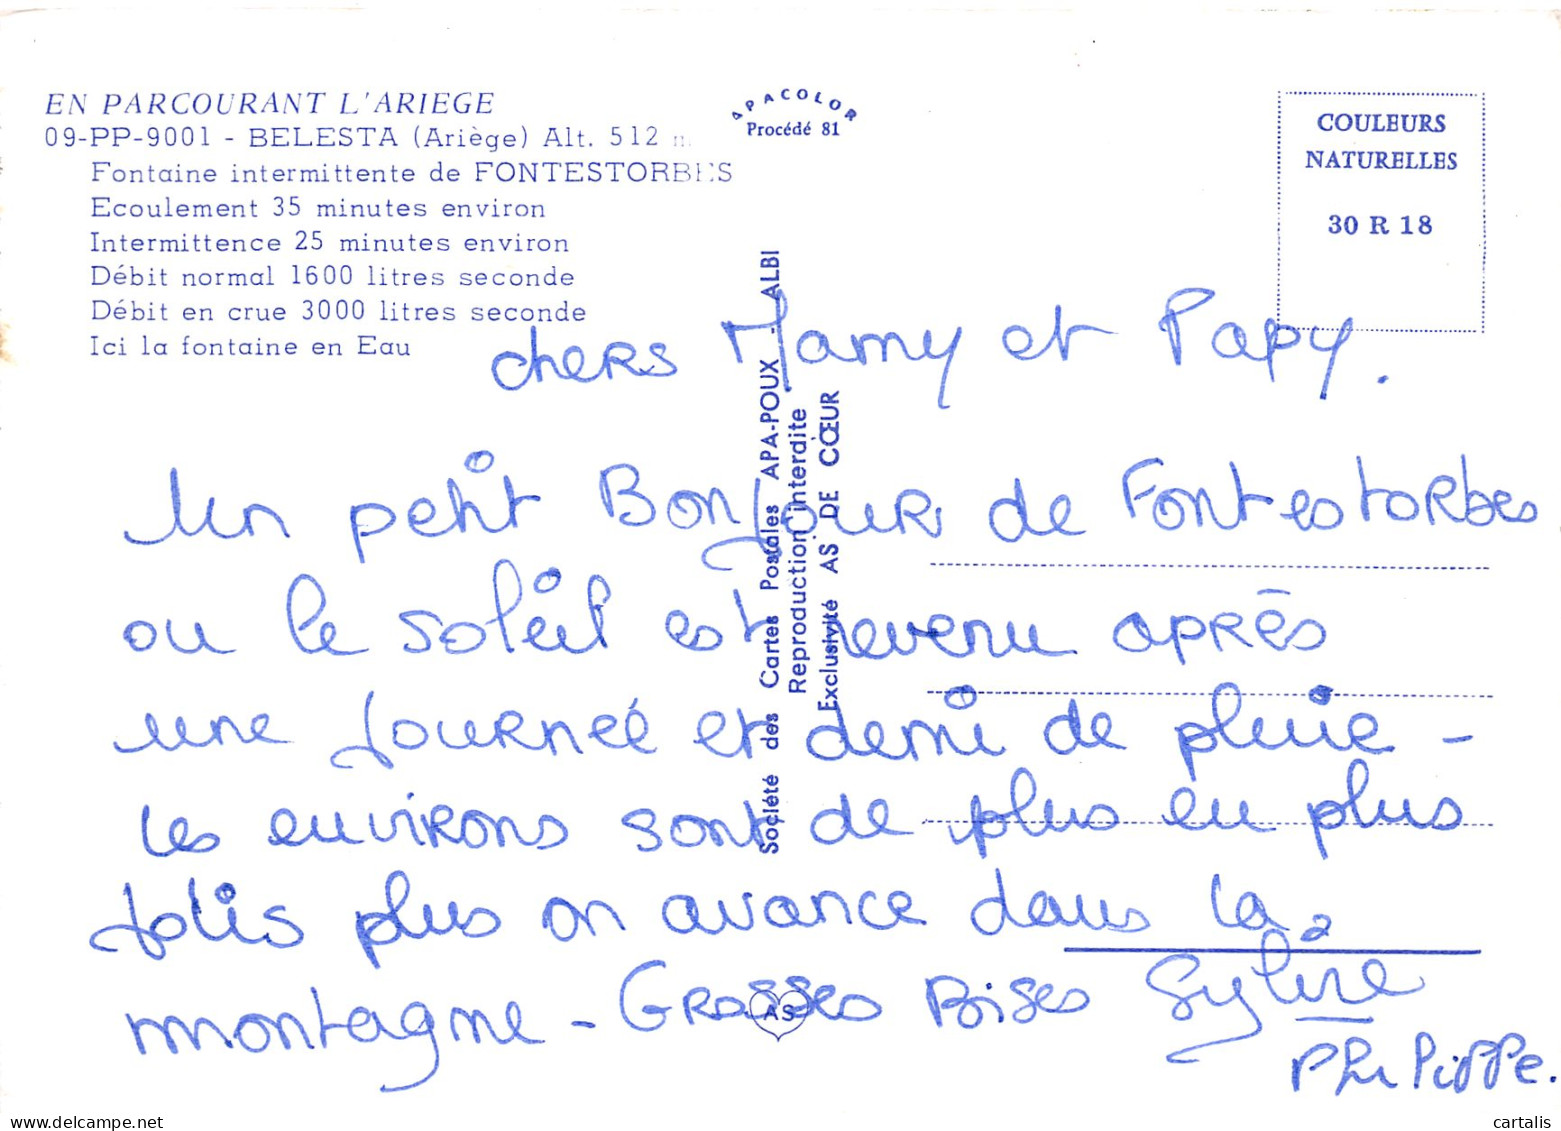 EN PARCOURANT L'ARIEGE
09-PP-9001 - BELESTA (Ariège) Alt. 512 m.
Fontaine intermittente de FONTESTORBES
Ecoulement 35 minutes environ
Intermittence 25 minutes environ
Débit normal 1600 litres seconde
Débit en crue 3000 litres seconde
Ici la fontaine en Eau
APACOLOR
Procédé 81
COULEURS
NATURELLES
30 R 18
Société des Cartes Postales APA-POUX - ALBI
Reproduction interdite
Exclusivité AS DE CŒUR
chers Mamy et Papy.
Un petit Bonjour de Fontestorbes
ou le soleil est revenu après
une journeé et demi de pluie -
les environs sont de plus en plus
jolis plus on avance dans la
montagne - Grosses Bises Sylvie
PhiLippe.
AS
cartalis